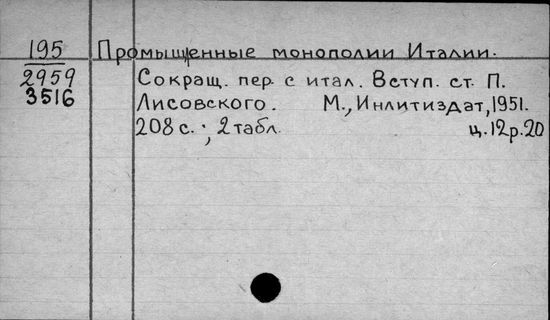 195 Промышленные монополии Италии.
2959 Сокращ. пер. с итал. Вступ. ст. П.
3516 Лисовского. М., Инлитиздат, 1951.
208 с.; 2 табл. ц. 12 р. 20